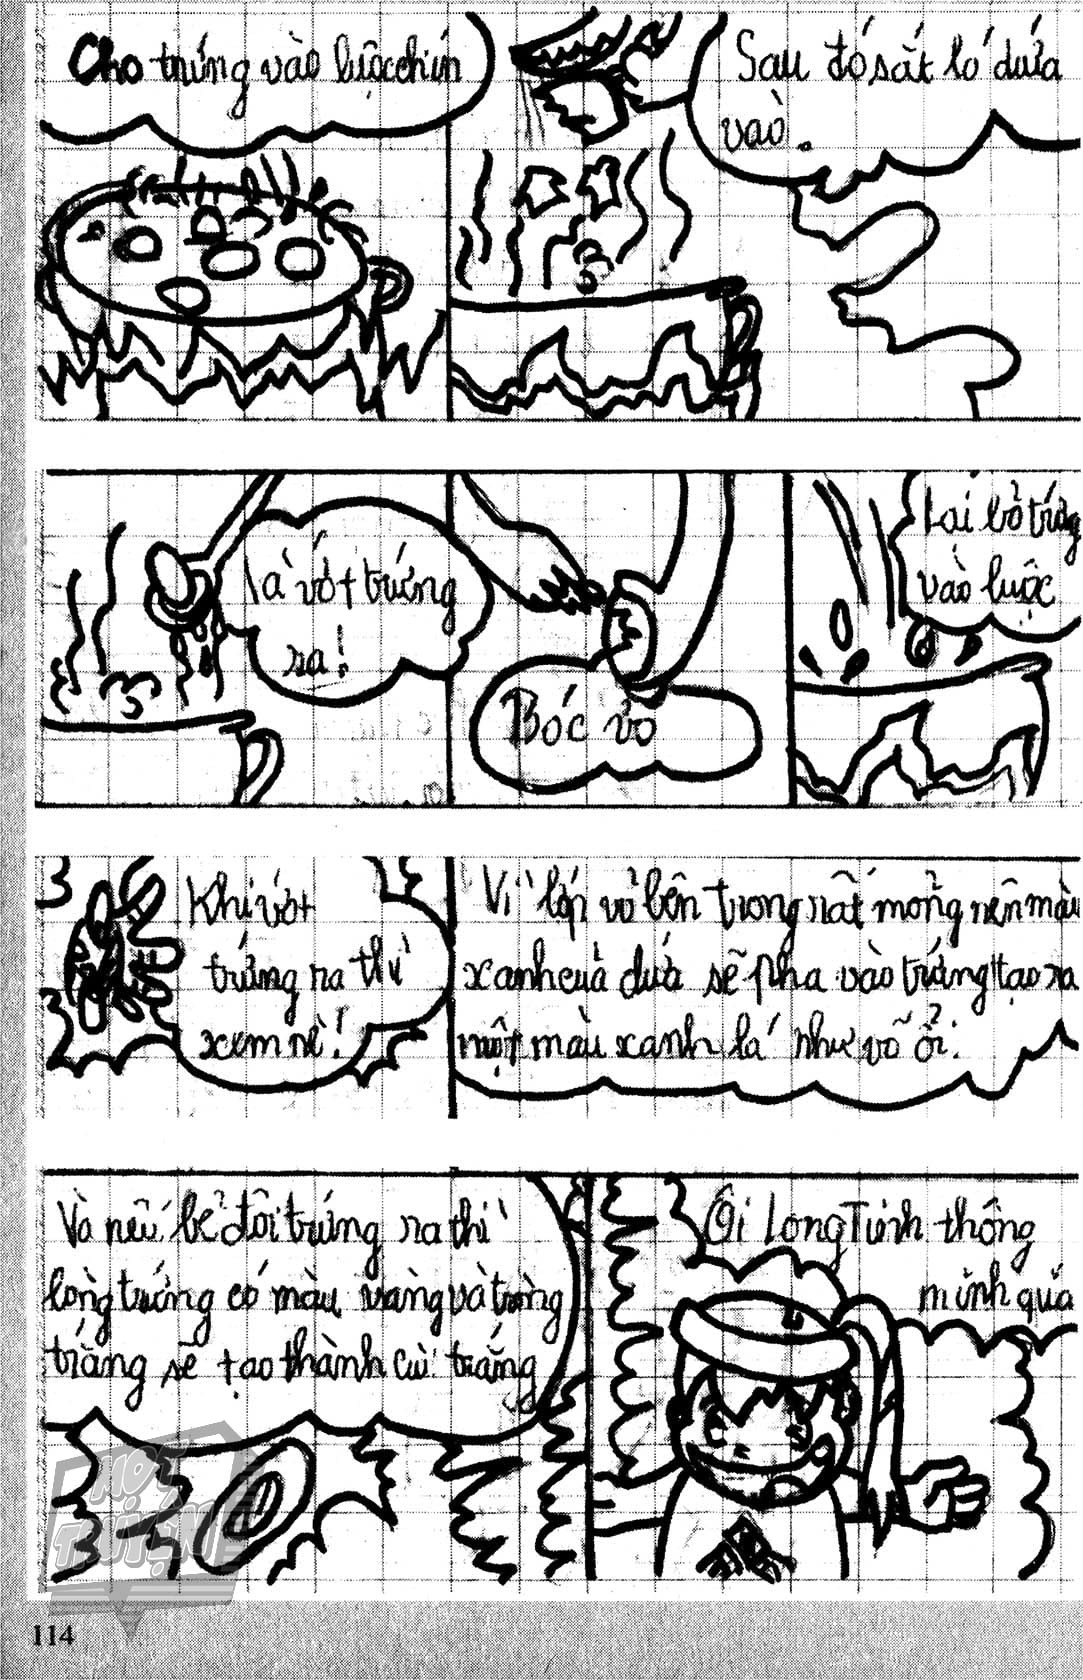 Cho trứng vào luộc chín
Sau đó sắt lá dứa
vào.
và vớt trứng
ra!
Bóc vỏ
Lại bỏ trứng
vào luộc
Khi vớt
trứng ra thì
xem nè!
Vì lớp vỏ bên trong rất mỏng nên màu
xanh của dứa sẽ pha vào trứng tạo ra
một màu xanh lá như vỏ ổi.
Và nếu bẻ đôi trứng ra thì
lòng trứng có màu vàng và tròng
trắng sẽ tạo thành cùi trắng
Ôi Long Tinh thông
minh quá
MỌT
TRUYỆN
114